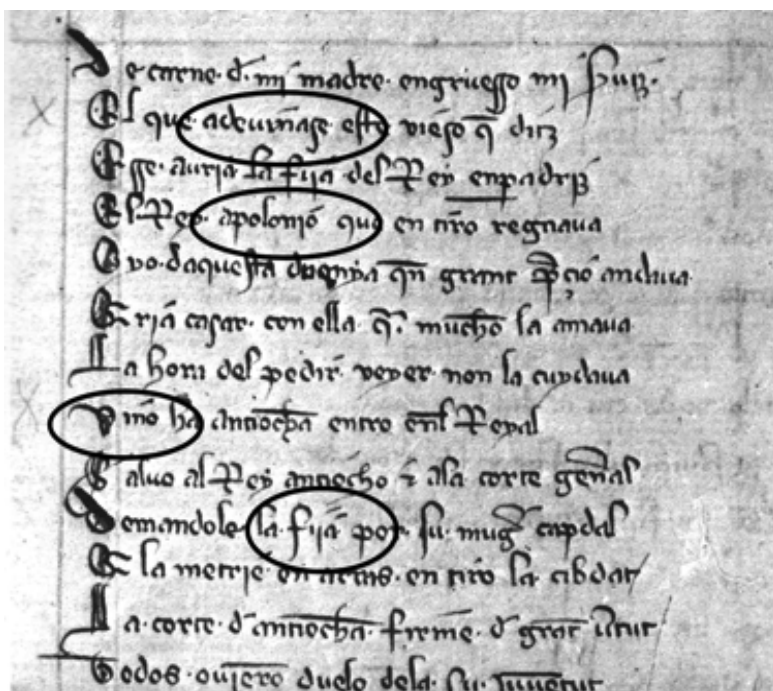 De carne. d̄. mi madre. engruesso mi ser uiȝ.
El que. adeuinase. este vieso q̄ ditȝ
Esse. auria la fija del Rey enpadriȝ
El Rey. apolonio que en tiro regnaua
Oyo. daquesta duenya qn̄ grant p̄çio andaua
Q̄ria casar. con ella. q̄. mucho la amaua
La hora del pedir. veyer non la cuydaua
Vino ha antiocha entro enl Reyal
Saluo al Rey antiocho τ ala corte gen̄al
Demandole la. fija por. su. muḡ capdal
Q̄ la metrie en arras. en tiro la cibdat
La. corte. d̄ antiocha. firme. d̄ grāt uertut
Todos. ouiero duelo dela. su. iuuentut